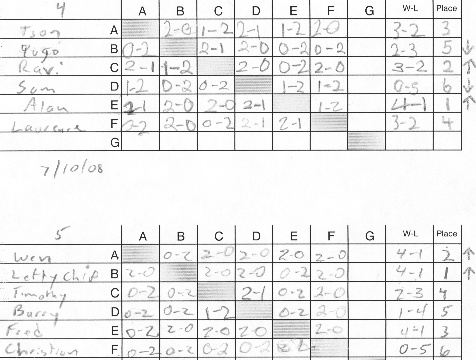 4 A B C D E F G W-L Place
Tson A 2-0 1-2 2-1 1-2 2-0 3-2 3
Yugo B 0-2 2-1 2-0 0-2 0-2 2-3 5 ↓
Ravi C 2-1 1-2 2-0 0-2 2-0 3-2 2 ↑
Sam D 1-2 0-2 0-2 1-2 1-2 0-5 6 ↓
Alan E 2-1 2-0 2-0 2-1 1-2 4-1 1 ↑
Laurence F 0-2 2-0 0-2 2-1 2-1 3-2 4
G
7/10/08
5 A B C D E F G W-L Place
Wen A 0-2 2-0 2-0 2-0 2-0 4-1 2 ↑
Lefty Chip B 2-0 2-0 2-0 0-2 2-0 4-1 1 ↑
Timothy C 0-2 0-2 2-1 0-2 2-0 2-3 4
Barry D 0-2 0-2 1-2 0-2 2-0 1-4 5
Fred E 0-2 2-0 2-0 2-0 2-0 4-1 3
Christian F 0-2 0-2 0-2 0-2 0-5 6